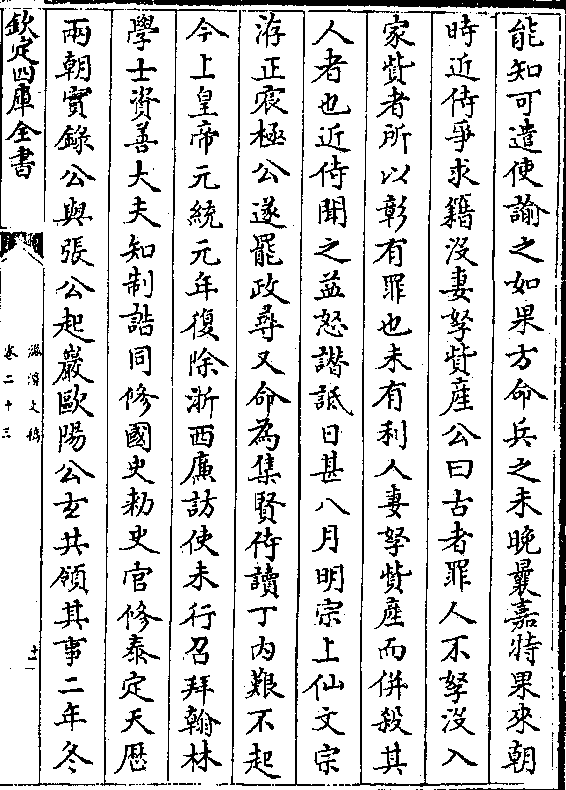 能知可遣使諭之如果方命兵之未晚曩嘉特果來朝
時近侍爭求籍沒妻孥貲產公曰古者罪人不孥沒入
家貲者所以彰有罪也未有利人妻孥貲產而併殺其
人者也近侍聞之益怒譛詆日甚八月明宗上仙文宗
㳺正宸極公遂罷政尋又命為集賢侍讀丁内艱不起
今上皇帝元統元年復除浙西廉訪使未行召拜翰林
學士資善大夫知制誥同修國史勅史官修泰定天厯
兩朝實錄公與張公起巖歐陽公玄共領其事二年冬
欽定四庫全書
滋溪文稿
卷二十三
十一